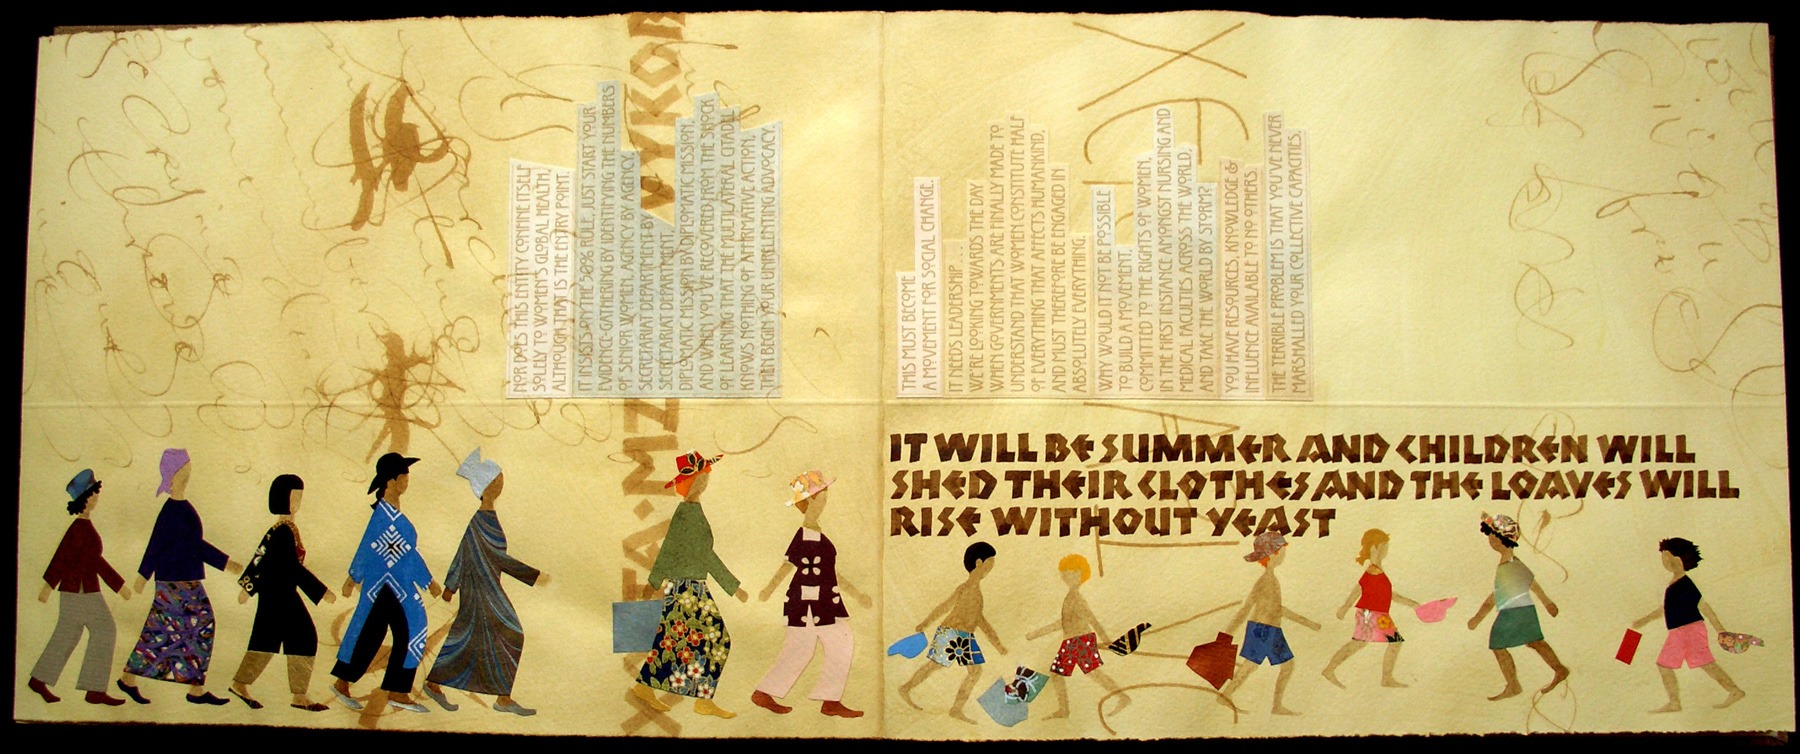 NOR DOES THIS ENTITY CONFINE ITSELF
SOLELY TO WOMEN'S GLOBAL HEALTH,
ALTHOUGH THAT IS THE ENTRY POINT.
IT INSISTS ON THE 50% RULE, JUST START YOUR
EVIDENCE-GATHERING BY IDENTIFYING THE NUMBERS
OF SENIOR WOMEN, AGENCY BY AGENCY,
SECRETARIAT DEPARTMENT BY
SECRETARIAT DEPARTMENT
DIPLOMATIC MISSION BY DIPLOMATIC MISSION,
AND WHEN YOU'VE RECOVERED FROM THE SHOCK
OF LEARNING THAT THE MULTILATERAL CITADEL
KNOWS NOTHING OF AFFIRMATIVE ACTION,
THEN BEGIN YOUR UNRELENTING ADVOCACY.
THIS MUST BECOME
A MOVEMENT FOR SOCIAL CHANGE.
IT NEEDS LEADERSHIP . . .
WE'RE LOOKING TOWARDS THE DAY
WHEN GOVERNMENTS ARE FINALLY MADE TO
UNDERSTAND THAT WOMEN CONSTITUTE HALF
OF EVERYTHING THAT AFFECTS HUMANKIND,
AND MUST THEREFORE BE ENGAGED IN
ABSOLUTELY EVERYTHING.
WHY WOULD IT NOT BE POSSIBLE
TO BUILD A MOVEMENT,
COMMITTED TO THE RIGHTS OF WOMEN,
IN THE FIRST INSTANCE AMONGST NURSING AND
MEDICAL FACULTIES ACROSS THE WORLD,
AND TAKE THE WORLD BY STORM?
YOU HAVE RESOURCES, KNOWLEDGE &
INFLUENCE AVAILABLE TO NO OTHERS.
THE TERRIBLE PROBLEM IS THAT YOU'VE NEVER
MARSHALLED YOUR COLLECTIVE CAPACITIES.
IT WILL BE SUMMER AND CHILDREN WILL
SHED THEIR CLOTHES AND THE LOAVES WILL
RISE WITHOUT YEAST